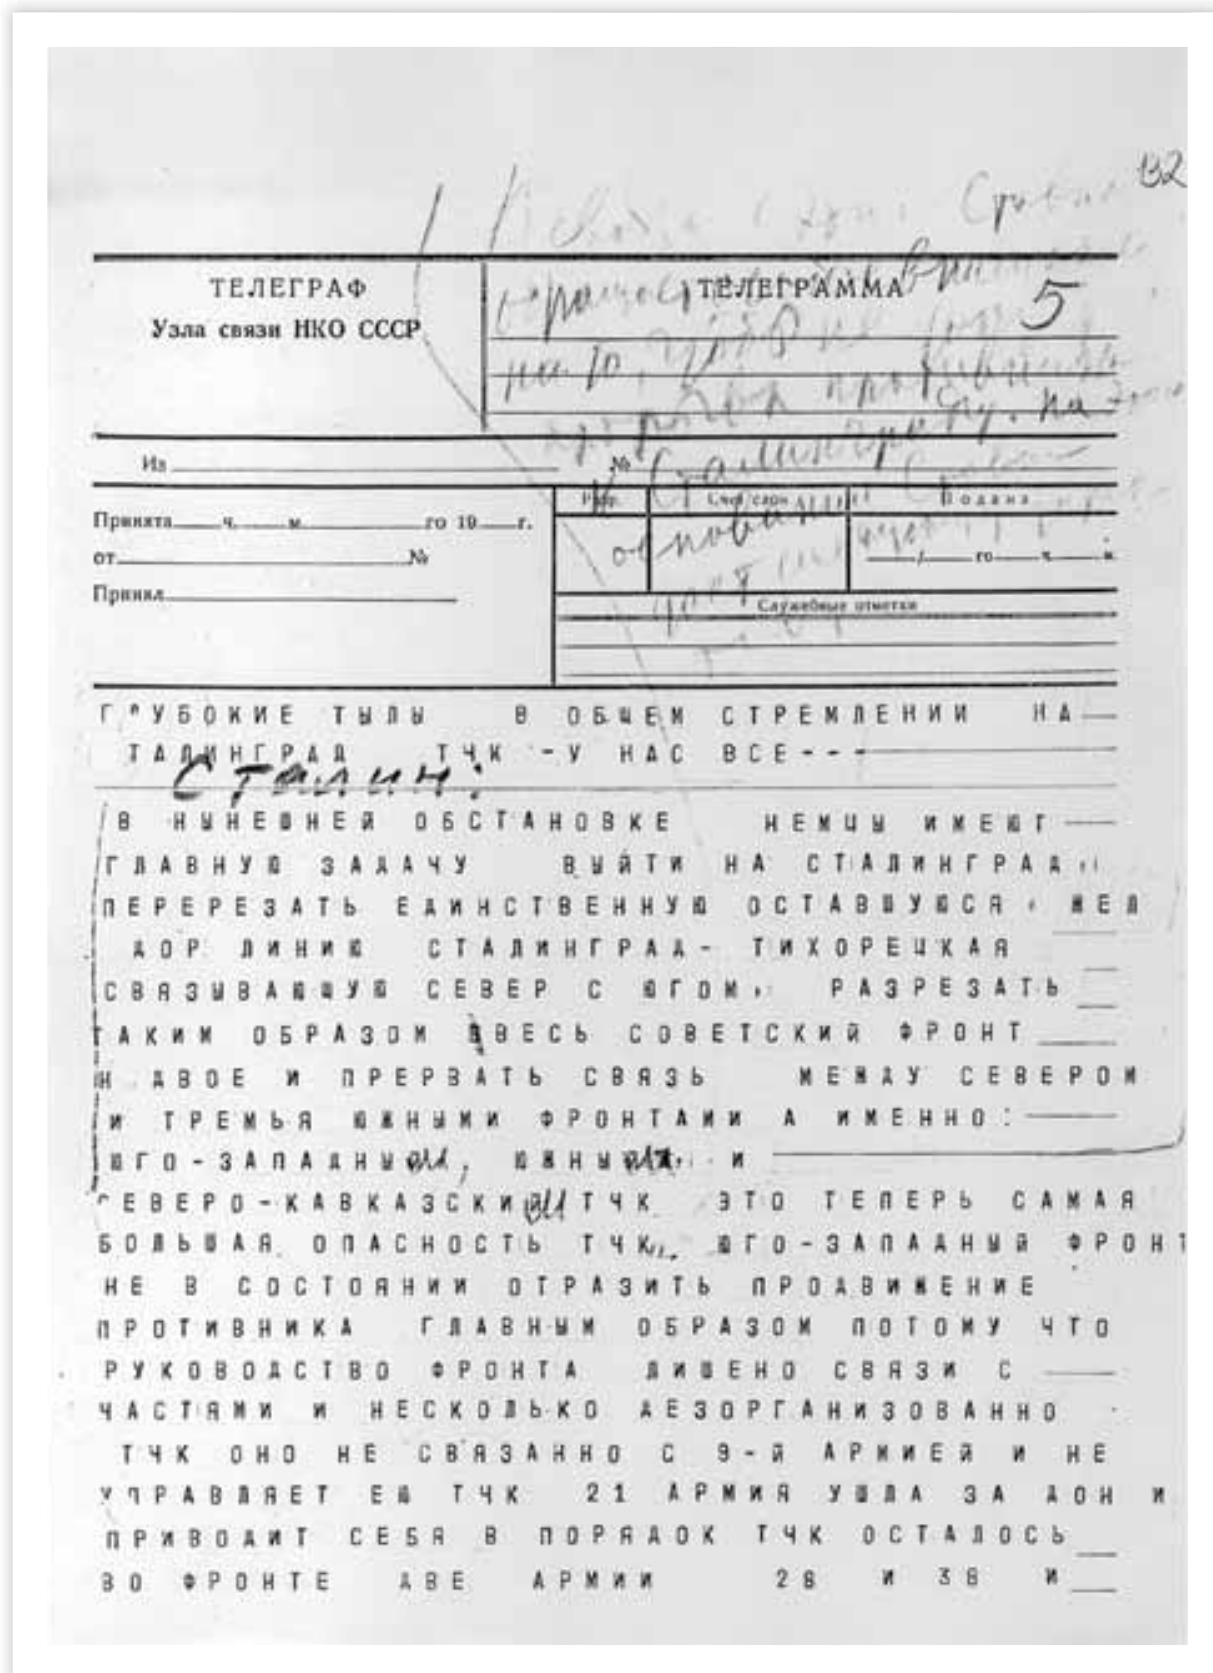 132
ТЕЛЕГРАФ
Узла связи НКО СССР
ТЕЛЕГРАММА
5
на то, чтобы не
Сталинграду. На
Из № 
Счет слов Подана
Принята ч. м. го 19 г.
от №
/ го ч. м.
Принял
Служебные отметки
ГЛУБОКИЕ ТЫЛЫ В ОБЩЕМ СТРЕМЛЕНИИ НА
ТАЛИНГРАД ТЧК -У НАС ВСЕ---
СТАЛИН:
В НЫНЕШНЕЙ ОБСТАНОВКЕ НЕМЦЫ ИМЕЮТ
ГЛАВНУЮ ЗАДАЧУ ВЫЙТИ НА СТАЛИНГРАД,,
ПЕРЕРЕЗАТЬ ЕДИНСТВЕННУЮ ОСТАВШУЮСЯ ЖЕЛ
ДОР ЛИНИЮ СТАЛИНГРАД- ТИХОРЕЦКАЯ
СВЯЗЫВАЮЩУЮ СЕВЕР С ЮГОМ, РАЗРЕЗАТЬ
ТАКИМ ОБРАЗОМ ВВЕСЬ СОВЕТСКИЙ ФРОНТ
Н ДВОЕ И ПРЕРВАТЬ СВЯЗЬ МЕЖДУ СЕВЕРОМ
И ТРЕМЬЯ ЮЖНЫМИ ФРОНТАМИ А ИМЕННО:
ЮГО-ЗАПАДНЫМ, ЮЖНЫМ, И
СЕВЕРО-КАВКАЗСКИМ ТЧК ЭТО ТЕПЕРЬ САМАЯ
БОЛЬШАЯ ОПАСНОСТЬ ТЧК,, ЮГО-ЗАПАДНЫЙ ФРОНТ
НЕ В СОСТОЯНИИ ОТРАЗИТЬ ПРОДВИЖЕНИЕ
ПРОТИВНИКА ГЛАВНЫМ ОБРАЗОМ ПОТОМУ ЧТО
РУКОВОДСТВО ФРОНТА ЛИШЕНО СВЯЗИ С
ЧАСТЯМИ И НЕСКОЛЬКО ДЕЗОРГАНИЗОВАННО
ТЧК ОНО НЕ СВЯЗАННО С 9-Й АРМИЕЙ И НЕ
УПРАВЛЯЕТ ЕЮ ТЧК 21 АРМИЯ УШЛА ЗА ДОН И
ПРИВОДИТ СЕБЯ В ПОРЯДОК ТЧК ОСТАЛОСЬ
ВО ФРОНТЕ ДВЕ АРМИИ 28 И 38 И